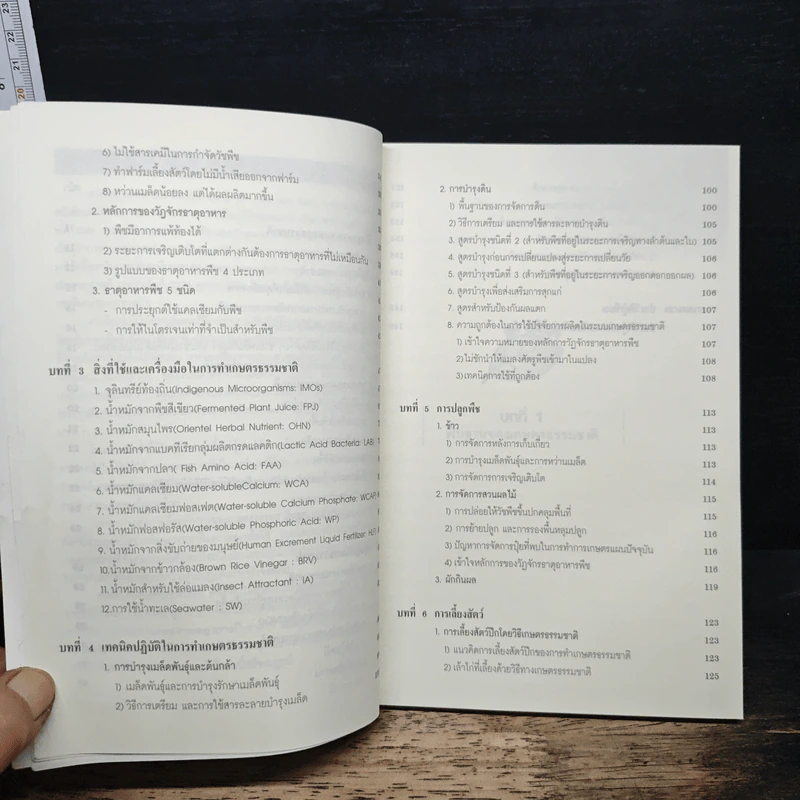 23
22
21
20
6) ไม่ใช้สารเคมีในการกำจัดวัชพืช
7) ทำฟาร์มเลี้ยงสัตว์โดยไม่มีน้ำเสียออกจากฟาร์ม
8) หว่านเมล็ดน้อยลง แต่ได้ผลผลิตมากขึ้น
2. หลักการของวัฏจักรธาตุอาหาร
1) พืชมีอาการแพ้ท้องได้
2) ระยะการเจริญเติบโตที่แตกต่างกันต้องการธาตุอาหารที่ไม่เหมือนกัน
3) รูปแบบของธาตุอาหารพืช 4 ประเภท
3. ธาตุอาหารพืช 5 ชนิด
- การประยุกต์ใช้แคลเซียมกับพืช
- การให้ไนโตรเจนเท่าที่จำเป็นสำหรับพืช
บทที่ 3 สิ่งที่ใช้และเครื่องมือในการทำเกษตรธรรมชาติ
1. จุลินทรีย์ท้องถิ่น(Indigenous Microorganisms: IMOs)
2. น้ำหมักจากพืชสีเขียว(Fermented Plant Juice: FPJ)
3. น้ำหมักสมุนไพร(Orientel Herbal Nutrient: OHN)
4. น้ำหมักจากแบคทีเรียกลุ่มผลิตกรดแลคติก(Lactic Acid Bacteria: LAB)
5. น้ำหมักจากปลา( Fish Amino Acid: FAA)
6. น้ำหมักแคลเซียม(Water-solubleCalcium: WCA)
7. น้ำหมักแคลเซียมฟอสเฟต(Water-soluble Calcium Phosphate: WCAP
8. น้ำหมักฟอสฟอรัส(Water-soluble Phosphoric Acid: WP)
9. น้ำหมักจากสิ่งขับถ่ายของมนุษย์(Human Excrement Liquid Fertilizer:
10.น้ำหมักจากข้าวกล้อง(Brown Rice Vinegar : BRV)
11. น้ำหมักสำหรับใช้ล่อแมลง(Insect Attractant : IA)
12.การใช้น้ำทะเล(Seawater : SW)
บทที่ 4 เทคนิคปฏิบัติในการทำเกษตรธรรมชาติ
1. การบำรุงเมล็ดพันธุ์และต้นกล้า
1) เมล็ดพันธุ์และการบำรุงรักษาเมล็ดพันธุ์
2) วิธีการเตรียม และการใช้สารละลายบำรุงเมล็ด
2. การบำรุงดิน 100
1) พื้นฐานของการจัดการดิน 100
2) วิธีการเตรียม และการใช้สารละลายบำรุงดิน 105
3. สูตรบำรุงชนิดที่ 2 (สำหรับพืชที่อยู่ในระยะการเจริญทางลำต้นและใบ) 105
4. สูตรบำรุงก่อนการเปลี่ยนแปลงสู่ระยะการเปลี่ยนวัย 106
5. สูตรบำรุงชนิดที่ 3 (สำหรับพืชที่อยู่ในระยะการเจริญออกดอกออกผล) 106
6. สูตรบำรุงเพื่อส่งเสริมการสุกแก่ 106
7. สูตรสำหรับป้องกันผลแตก 107
8. ความถูกต้องในการใช้ปัจจัยการผลิตในระบบเกษตรธรรมชาติ 107
1)เข้าใจความหมายของหลักการวัฏจักรธาตุอาหารพืช 107
2)ไม่ชักนำให้แมลงศัตรูพืชเข้ามาในแปลง 108
3)เทคนิคการใช้ที่ถูกต้อง 108
บทที่ 5 การปลูกพืช 113
1. ข้าว 113
1) การจัดการหลังการเก็บเกี่ยว 113
2) การบำรุงเมล็ดพันธุ์และการหว่านเมล็ด 113
3) การจัดการการเจริญเติบโต 114
2. การจัดการสวนผลไม้ 115
1) การปล่อยให้วัชพืชขึ้นปกคลุมพื้นที่ 115
2) การย้ายปลูก และการรองพื้นหลุมปลูก 116
3) ปัญหาการจัดการปุ๋ยที่พบในการทำการเกษตรแผนปัจจุบัน 116
4) เข้าใจหลักการของวัฏจักรธาตุอาหารพืช 116
3. ผักกินผล 119
บทที่ 6 การเลี้ยงสัตว์ 123
1. การเลี้ยงสัตว์ปีกโดยวิธีเกษตรธรรมชาติ 123
1) แนวคิดการเลี้ยงสัตว์ปีกของการทำเกษตรธรรมชาติ 123
2) เล้าไก่ที่เลี้ยงด้วยวิธีทางเกษตรธรรมชาติ 125